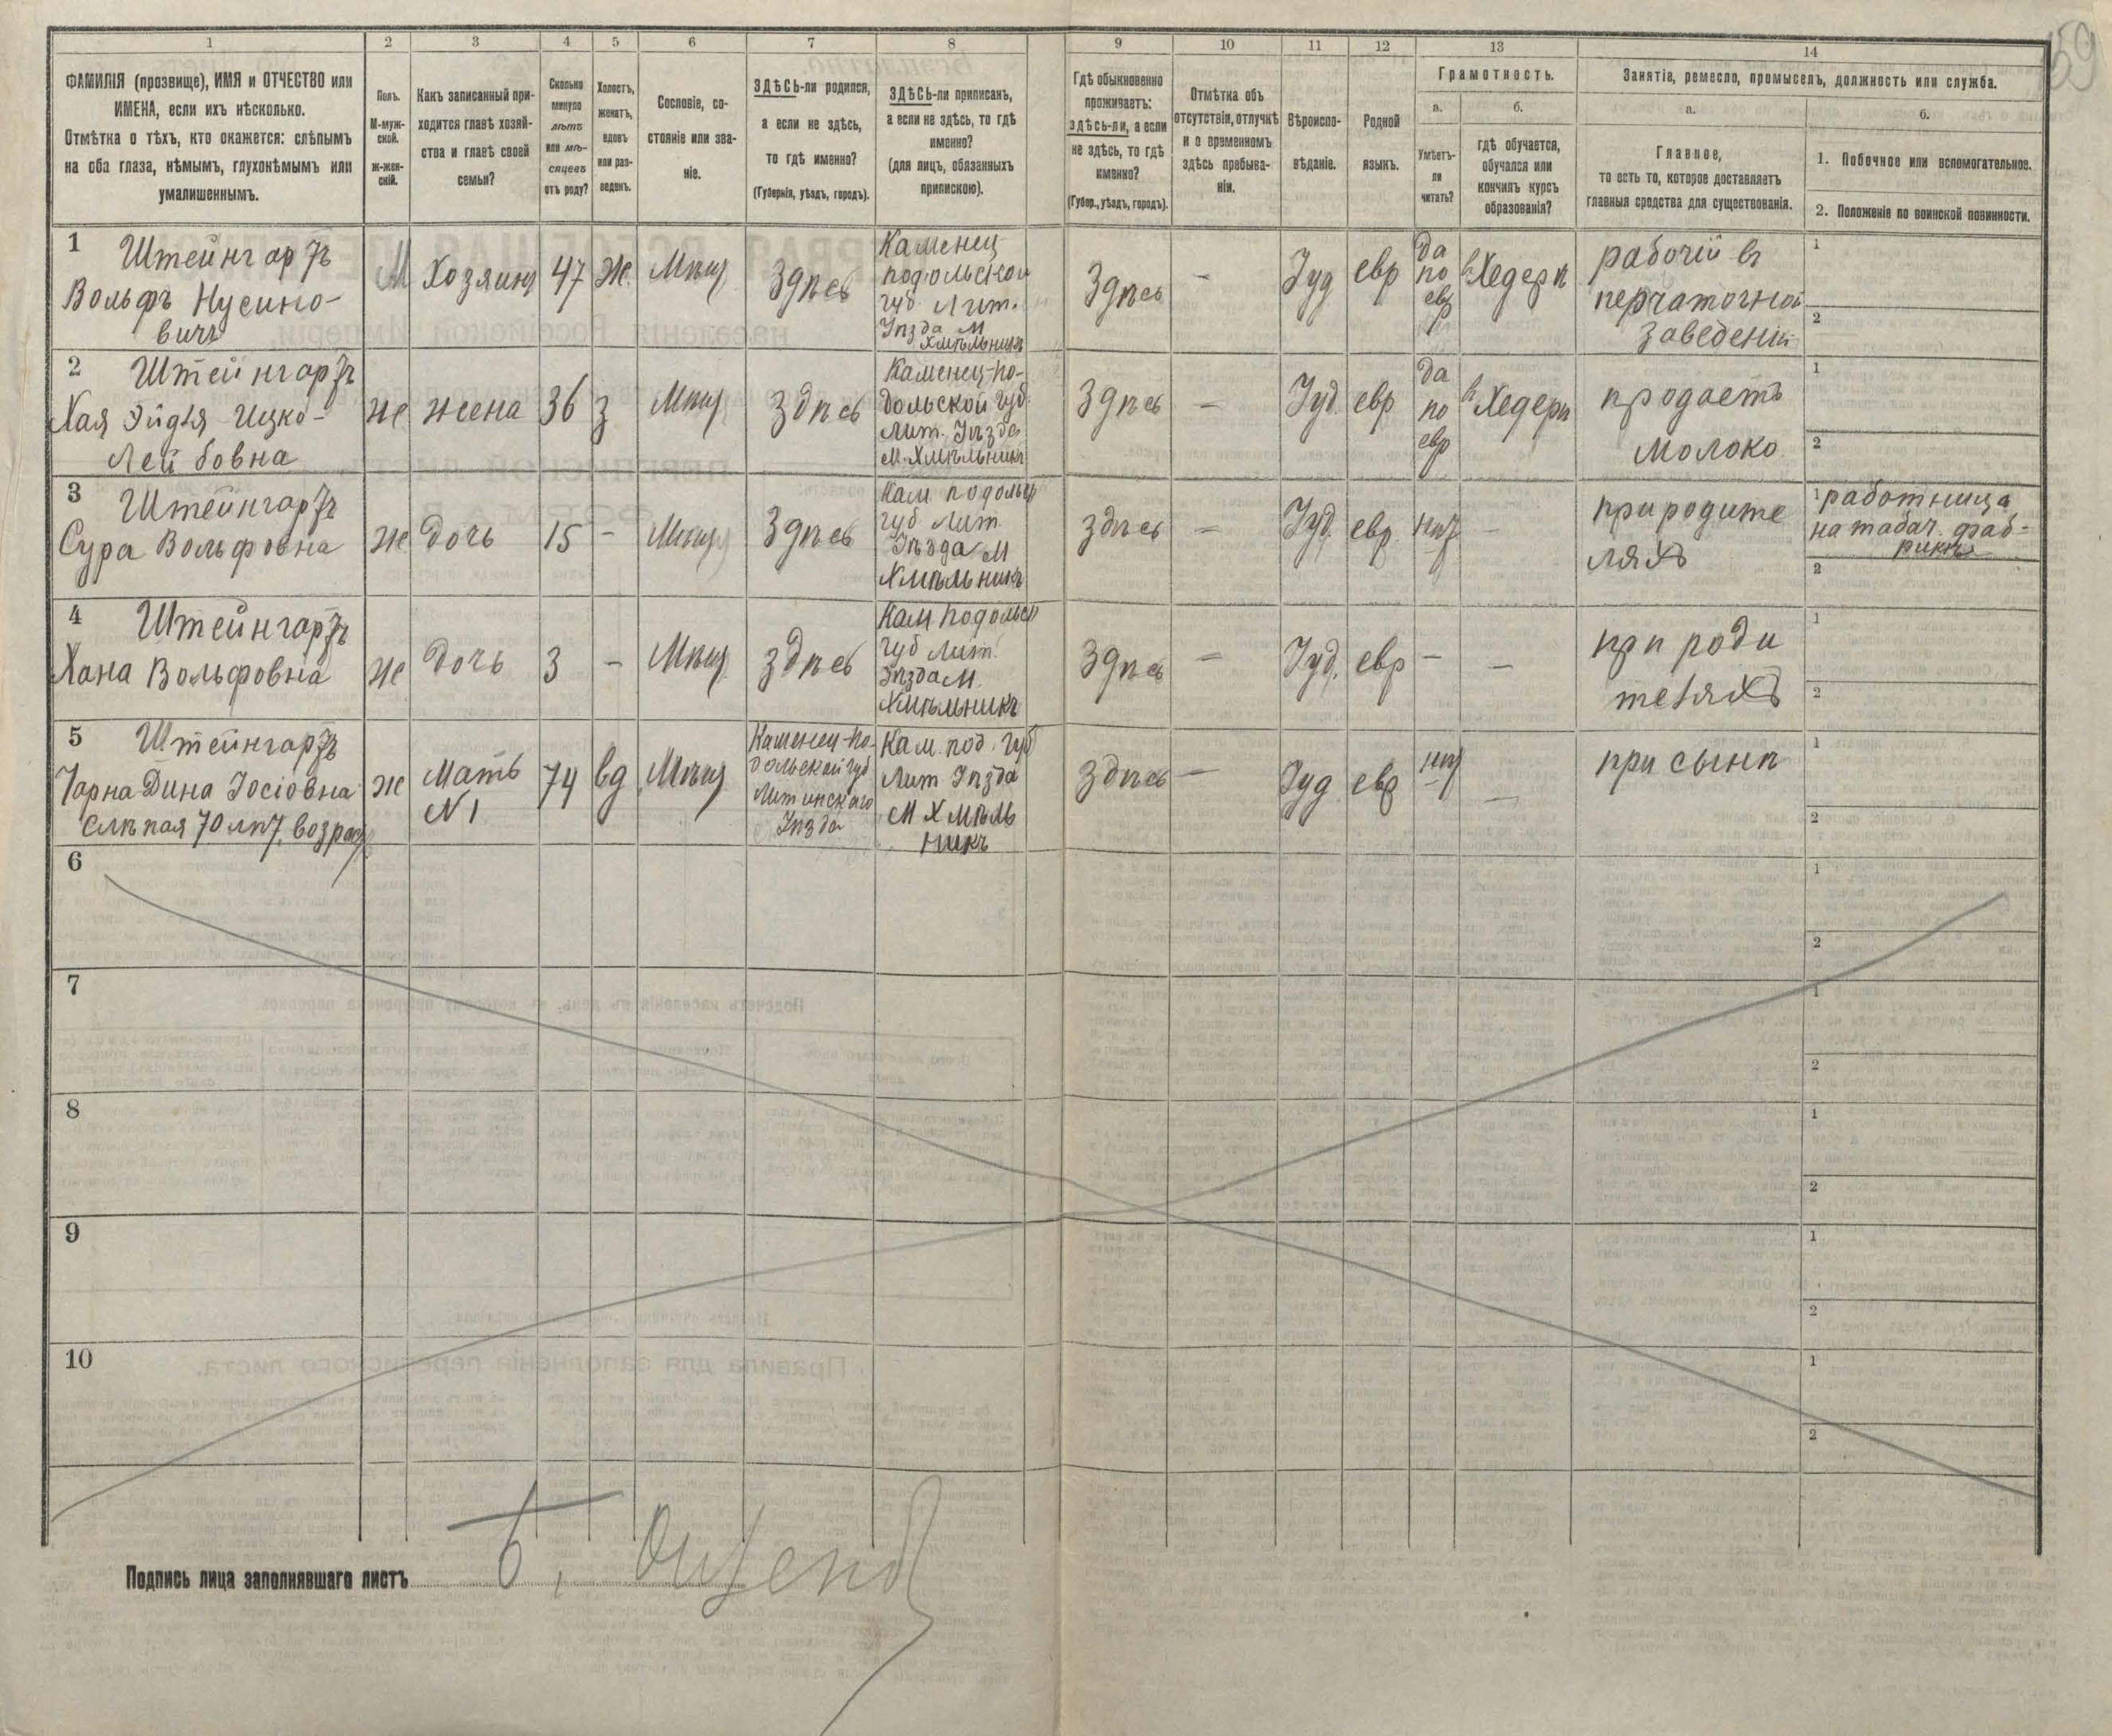 59
1
2
3
4
5
6
7
8
9
10
11
12
13
14
ФАМИЛІЯ (прозвище), ИМЯ и ОТЧЕСТВО или
ИМЕНА, если ихъ нѣсколько.
Отмѣтка о тѣхъ, кто окажется: слѣпымъ
на оба глаза, нѣмымъ, глухонѣмымъ или
умалишеннымъ.
Полъ.
М-муж-
ской.
ж-жен-
скій.
Какъ записанный при-
ходится главѣ хозяй-
ства и главѣ своей
семьи?
Сколько
минуло
лѣтъ
или мѣ-
сяцевъ
отъ роду?
Холостъ,
женатъ,
вдовъ
или раз-
веденъ.
Сословіе, со-
стояніе или зва-
ніе.
ЗДѢСЬ-ли родился,
а если не здѣсь,
то гдѣ именно?
(Губернія, уѣздъ, городъ).
ЗДѢСЬ-ли приписанъ,
а если не здѣсь, то гдѣ
именно?
(для лицъ, обязанныхъ
припискою).
Гдѣ обыкновенно
проживаетъ:
здѣсь-ли, а если
не здѣсь, то гдѣ
именно?
(Губер., уѣздъ, городъ).
Отмѣтка объ
отсутствіи, отлучкѣ
и о временномъ
здѣсь пребыва-
ніи.
Вѣроиспо-
вѣданіе.
Родной
языкъ.
Грамотность.
а.
б.
Умѣетъ-
ли
читать?
гдѣ обучается,
обучался или
кончилъ курсъ
образованія?
Занятіе, ремесло, промыселъ, должность или служба.
а.
б.
Главное,
то есть то, которое доставляетъ
главныя средства для существованія.
1. Побочное или вспомогательное.
2. Положеніе по воинской повинности.
1
Штейнгарзъ
Вольфъ Нусино-
вичъ
М
Хозяинъ
47
Ж.
Мѣщ
Здѣсь
Каменец
подольской
губ. Лит.
Уѣзда М
Хмѣльникъ
Здѣсь
–
Іуд
евр
да
по
евр
в Хедерѣ
рабочій въ
перчаточной
заведеніи
1
2
2
Штейнгарзъ
Хая Эйдля Ицко-
Лейбовна
же
жена
36
з
Мѣщ
Здѣсь
Каменец-по-
дольской губ.
Лит. Уѣзда
М. Хмѣльникъ
Здѣсь
–
Іуд.
евр
да
по
евр
в Хедерѣ
продаетъ
молоко
1
2
3
Штейнгарзъ
Сура Вольфовна
же
дочь
15
–
Мѣщ
Здѣсь
Кам подольск
губ Лит
Уѣзда М
Хмѣльникъ
здѣсь
–
Іуд.
евр.
нѣт
–
при родите
ляхъ
1
работница
на табач. фаб-
рикѣ
2
4
Штейнгарзъ
Хана Вольфовна
же
дочь
3
–
Мѣщ
здѣсь
Кам подольск
губ Лит.
Уѣзда М.
Хмѣльникъ
Здѣсь
–
Іуд.
евр
–
–
при роди
теляхъ
1
2
5
Штейнгарзъ
Чарна Дина Іосіовна
Слѣпая 70 лѣт. возраст
ж
Мать
N 1
74
вд
Мѣщ
Каменец-по-
дольской губ
Литинскаго
Уѣзда
Кам. под. губ
Лит Уѣзда
М Хмѣль
никъ
здѣсь
–
Іуд
евр
нѣт
–
при сынѣ
1
2
6
1
2
7
1
2
8
1
2
9
1
2
10
1
2
Подпись лица заполнявшаго листъ